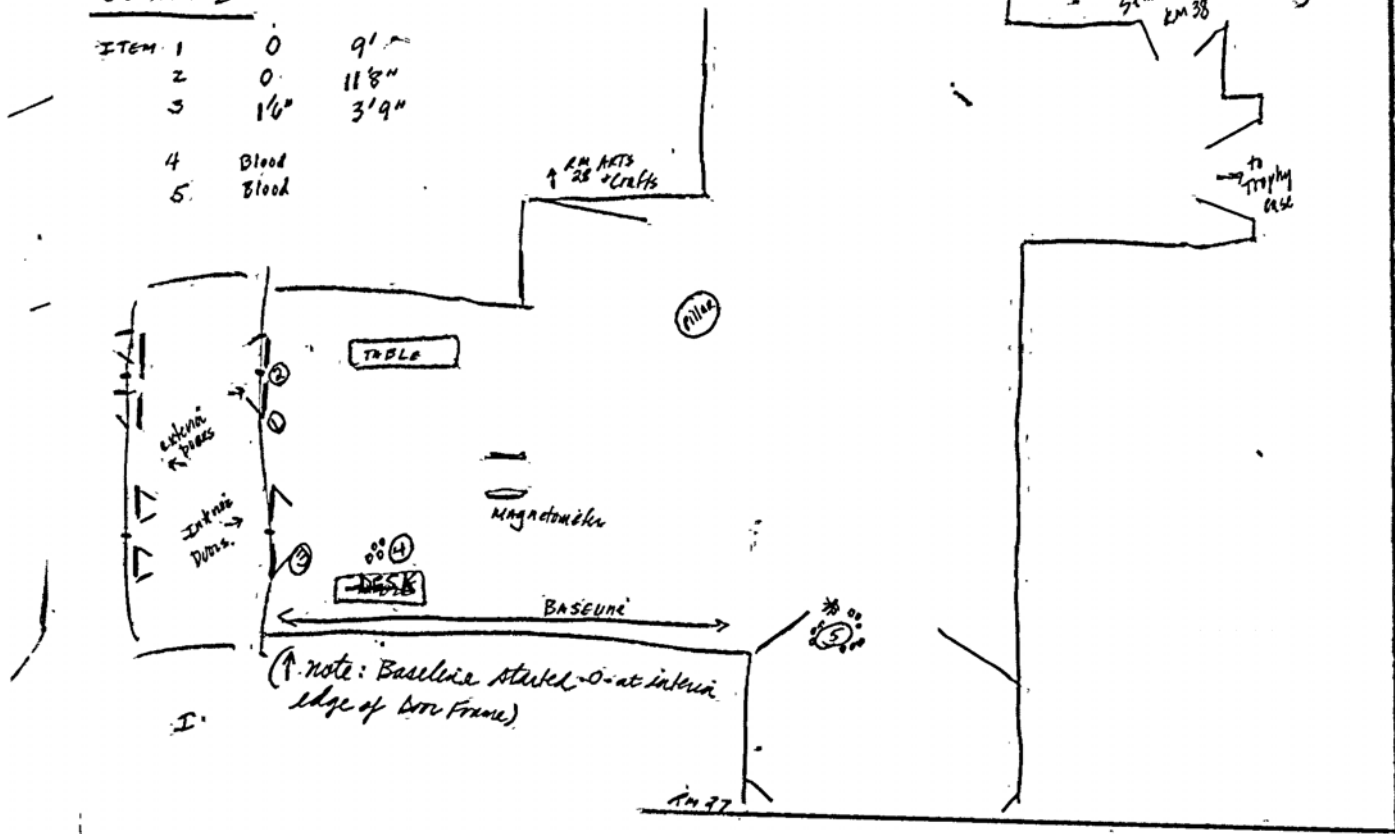 ITEM 1 0 9'
2 0 11'8"
3 1'6" 3'9"
4 Blood
5. Blood
RM 38
RM ARTS
28 + Crafts
to
Trophy
case
pillar
TABLE
2
1
exterior
Doors
Interior
Doors.
Magnetometer
3
4
DESK
BASELINE
5
(↑ note: Baseline started -0- at interior
edge of Door Frame)
I.
RM 37